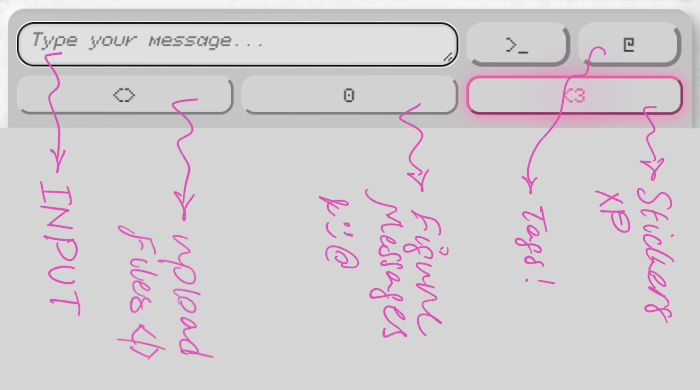 Type your message...
>_
@
<>
0
<3
INPUT
upload
files </>
figure
Messages
Tags!
Stickers
XP